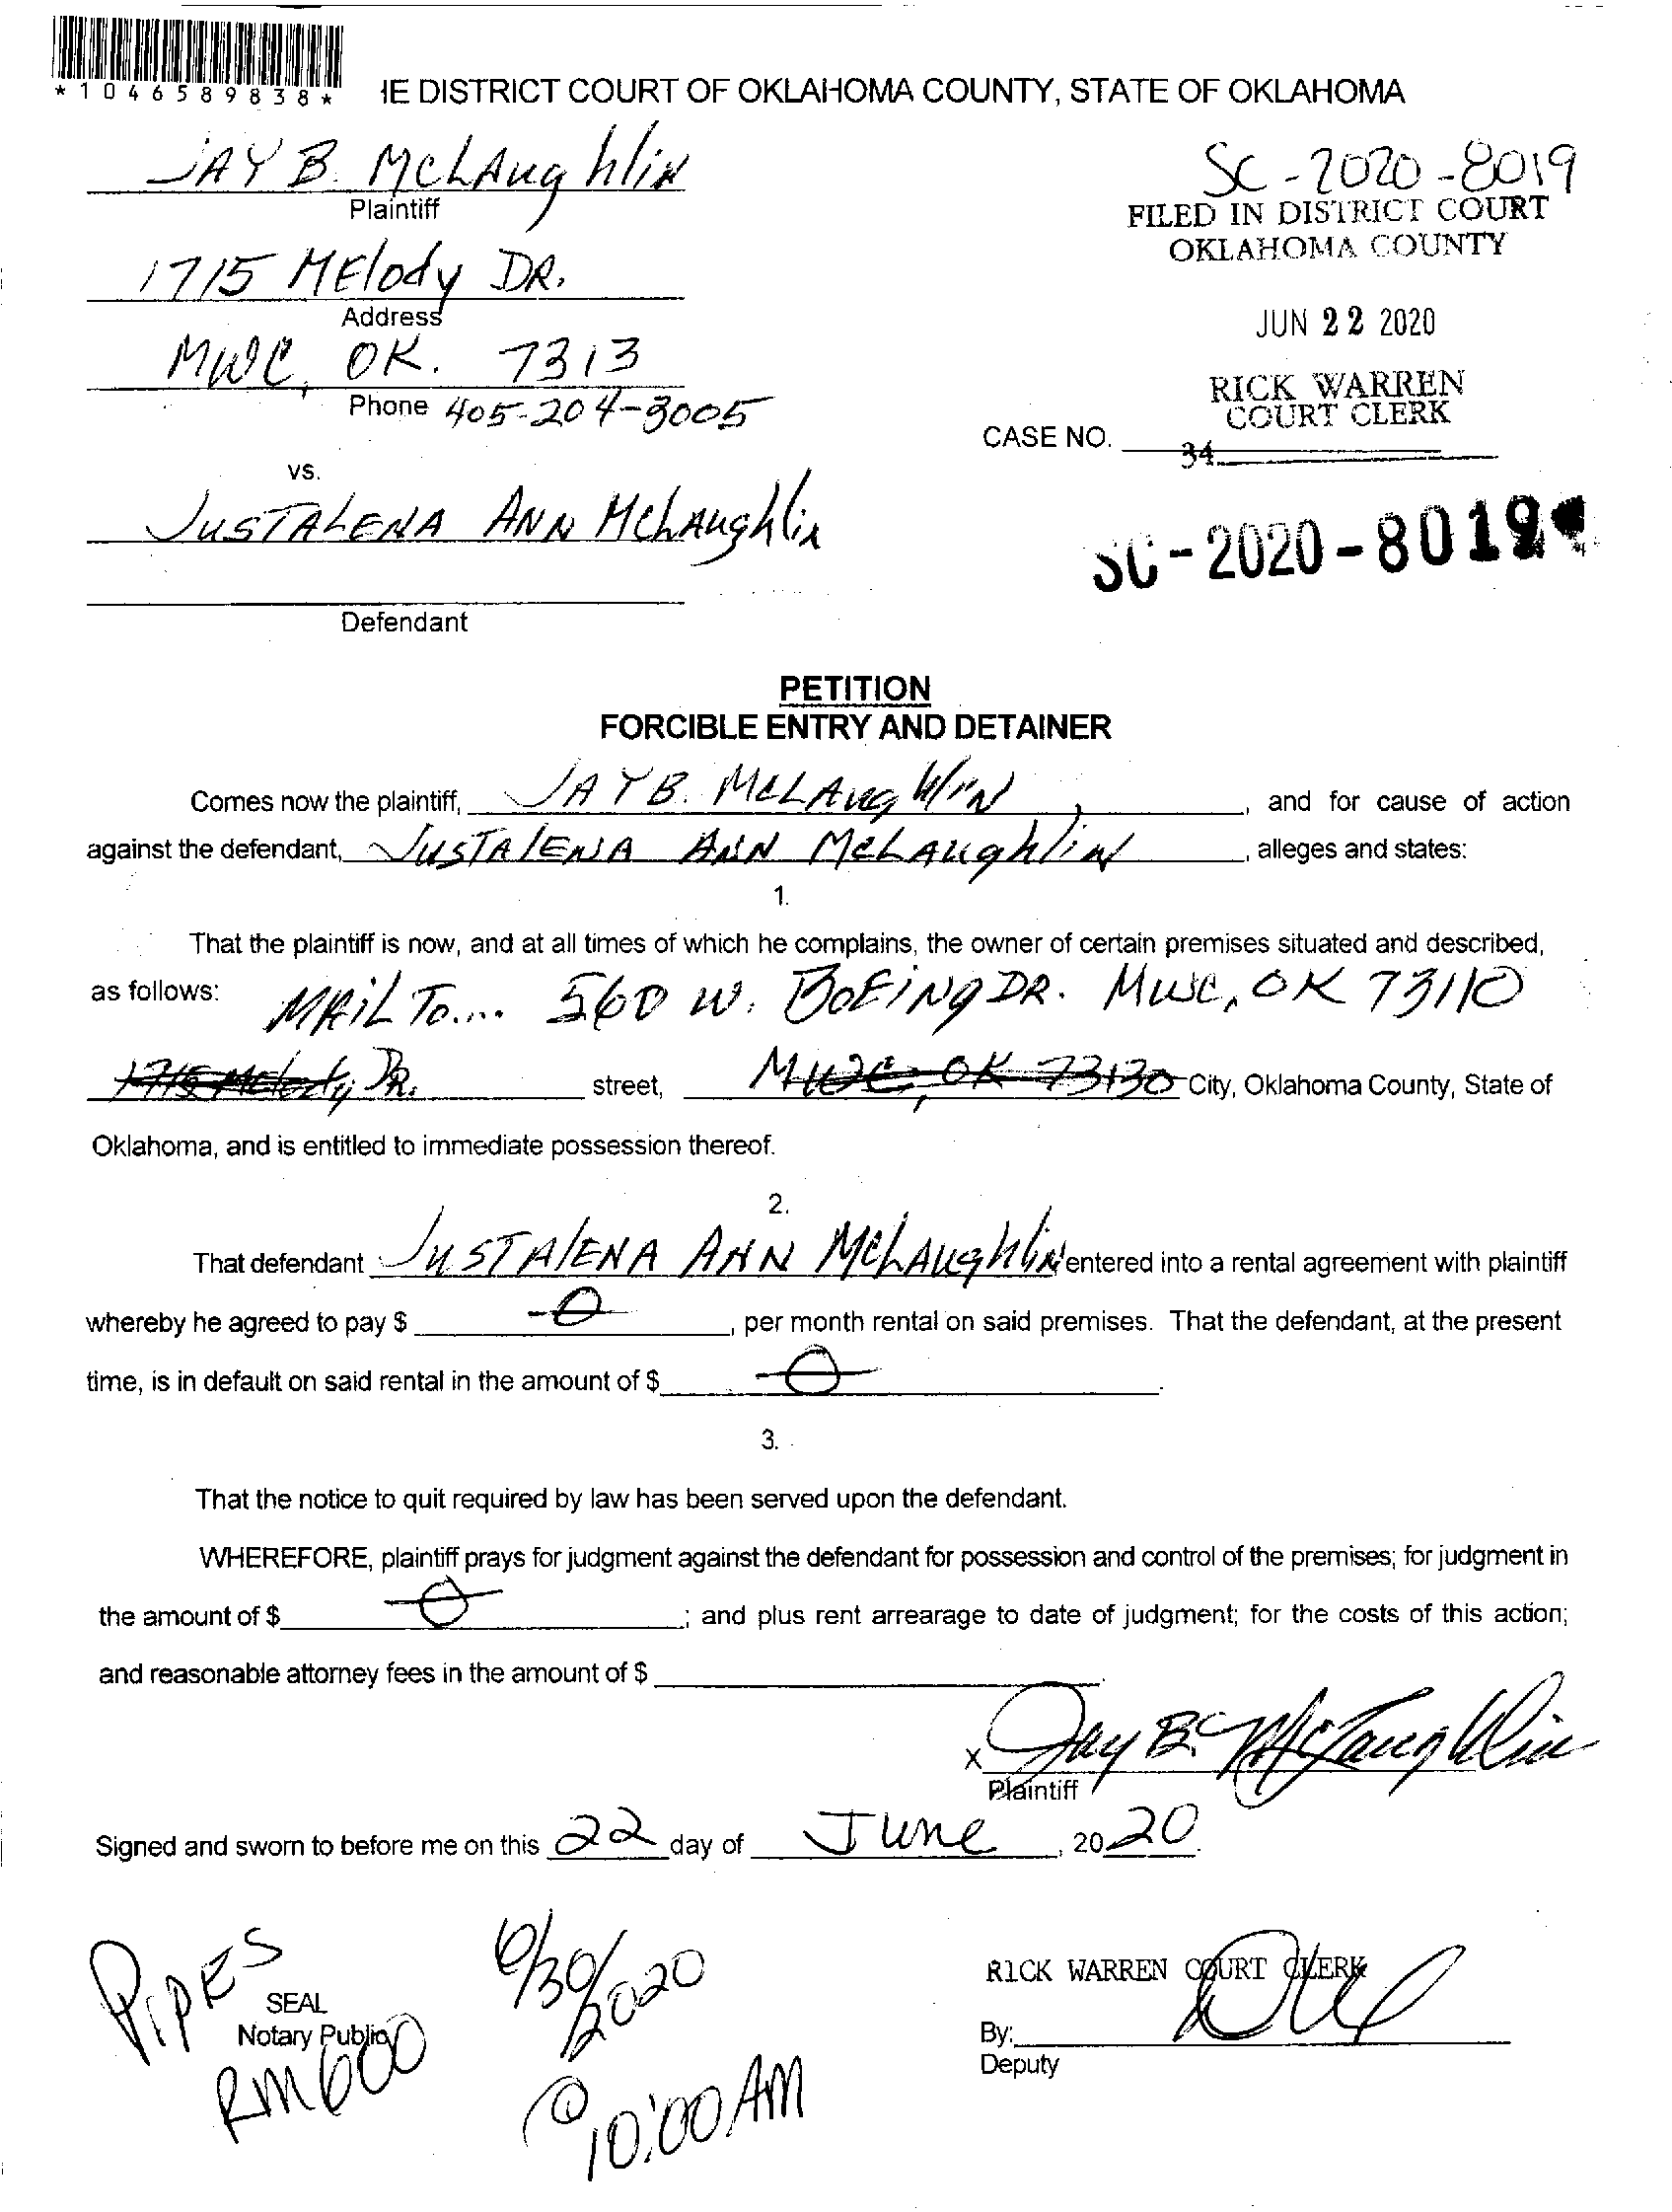 *1046589838*
HE DISTRICT COURT OF OKLAHOMA COUNTY, STATE OF OKLAHOMA
JAY B. McLAughliN
Plaintiff
SC-2020-8019
FILED IN DISTRICT COURT
OKLAHOMA COUNTY
1715 MElody DR.
Address
JUN 22 2020
MWC, OK. 7313
Phone 405-204-3005
RICK WARREN
COURT CLERK
CASE NO.
34
vs.
JUSTALENA ANN McLAughlin
SC-2020-8019
Defendant
PETITION
FORCIBLE ENTRY AND DETAINER
Comes now the plaintiff, JAY B. McLAughliN, and for cause of action
against the defendant, JUSTAlENA ANN McLAughliN, alleges and states:
1.
That the plaintiff is now, and at all times of which he complains, the owner of certain premises situated and described,
as follows: MAiL To.... 560 W. BOEiNg DR. MWC, OK 73110
1715 Melody DR. street, MWC, OK 73130 City, Oklahoma County, State of
Oklahoma, and is entitled to immediate possession thereof.
2.
That defendant JUSTAlENA ANN McLAughliN entered into a rental agreement with plaintiff
whereby he agreed to pay $ -0-, per month rental on said premises. That the defendant, at the present
time, is in default on said rental in the amount of $ -0-.
3.
That the notice to quit required by law has been served upon the defendant.
WHEREFORE, plaintiff prays for judgment against the defendant for possession and control of the premises; for judgment in
the amount of $ -0-; and plus rent arrearage to date of judgment; for the costs of this action;
and reasonable attorney fees in the amount of $
x Jay B. McLaughlin
Plaintiff
Signed and sworn to before me on this 22 day of June, 2020.
PIPES
SEAL
Notary Public
RM 600
6/30/2020
@ 10:00 AM
RICK WARREN COURT CLERK
By:
Deputy